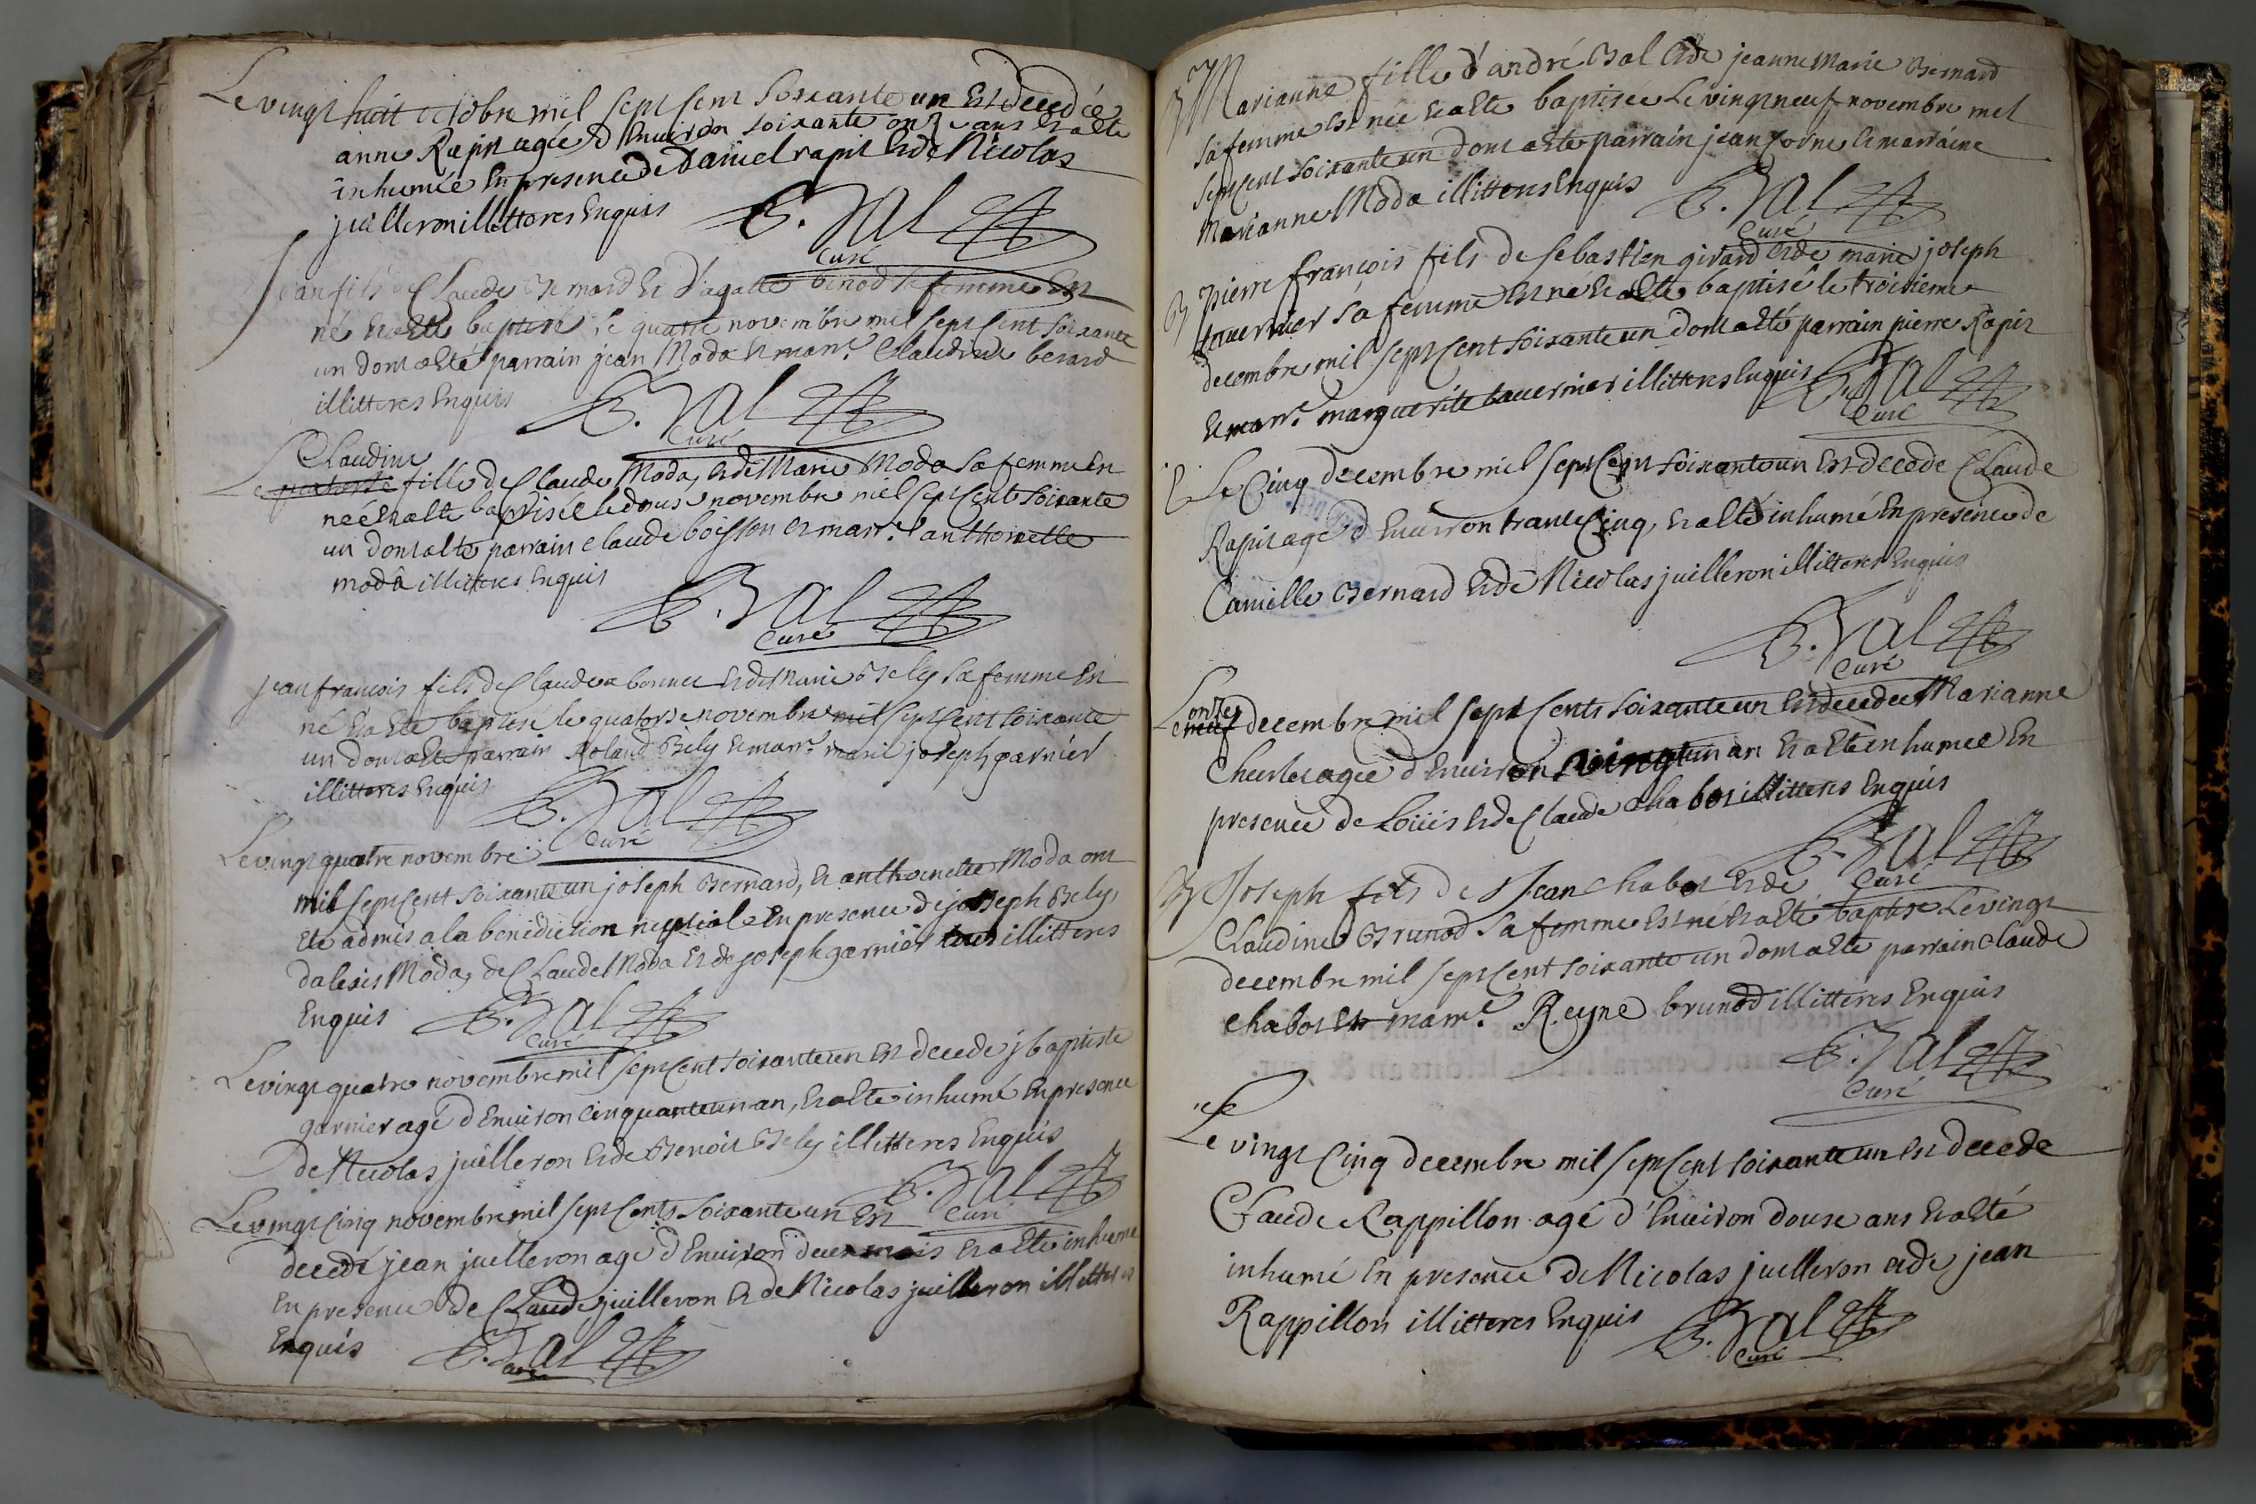 Le vingt huit octobre mil sept sent soixante un est decedée
anne Rapit agée d'environ soixante onze ans et a eté
inhumée en presence de Daniel rapit et de Nicolas
juilleron illitteres enquis
B. Bal
Curé
Jean fils de Claude Bernard et d'agatte benod sa femme est
né et a eté baptisé le quatre novembre mil sept cent soixante
un dont a eté parrain jean Moda et marr.e Claudine berard
illitteres enquis
B. Bal
Curé
Claudine
Le quatorse fille de Claude Moda, et de Marie Moda sa femme en
née et a eté baptisée le douse novembre mil sept cent soixante
un dont a eté parrain claude boisson et marr.e anthoinette
moda illitteres enquis
B. Bal
Curé
jean francois fils de Claude bonnet et de Marie Bely sa femme en
né et a eté baptisé le quatorse novembre mil sept cent soixante
un dont a eté parrain Roland Bely et marr.e marie joseph garnier
illitteres enquis
B. Bal
Curé
Le vingt quatre novembre
mil sept cent soixante un joseph Bernard, et anthoinette Moda ont
eté admis a la benediction nuptiale en presence de joseph Bely,
d'alexis Moda, de Claude Moda et de joseph garnier tous illitteres
Enquis
B. Bal
Curé
Le vingt quatre novembre mil sept cent soixante un est decedé j baptiste
garnier agé d'environ cinquante un an, et a eté inhumé en presence
de Nicolas juilleron et de Benoit Bely illitteres enquis
B. Bal
Curé
Le vingt cinq novembre mil sept cents soixante un est
decedé jean juilleron agé d'environ deux mois et a eté inhumé
en presence de Claude juilleron et de Nicolas juilleron illitteres
Enquis
B. Bal
Curé
B Marianne fille d'andré Bal et de jeanne Marie Bernard
sa femme est née et a eté baptisée le vingt neuf novembre mil
sept cent soixante un dont a eté parrain jean et marraine
Marianne Moda illitteres enquis
B. Bal
Curé
B pierre françois fils de sebastien girard et de marie joseph
tavernier sa femme est né et a eté baptisé le troisieme
decembre mil sept cent soixante un dont a eté parrain pierre Rapit
et marr.e marguerite tavernier illitteres enquis
B. Bal
Curé
Le Cinq decembre mil sept cent soixante un est decede Claude
Rapit agé d'environ trante cinq, et a eté inhumé en presence de
Camille Bernard et de Nicolas juilleron illitteres enquis
B. Bal
Curé
L'onze
Le neuf decembre mil sept cents soixante un est decedee Marianne
agée d'environ vingt un an et a eté enhumee en
presence de Loüis et de Claude chabot illitteres enquis
B. Bal
Curé
B Joseph fils de Jean chabot et de
Claudine Brunod sa femme est né et a eté baptisé le vingt
decembre mil sept cent soixante un dont a eté parrain claude
chabot et marr.e Reyne brunod illitteres enquis
B. Bal
Curé
Le vingt cinq decembre mil sept cent soixante un est decede
Claude Rappillon agé d'environ douse ans et a eté
inhumé en presence de Nicolas juilleron et de jean
Rappillon illitteres enquis
B. Bal
Curé